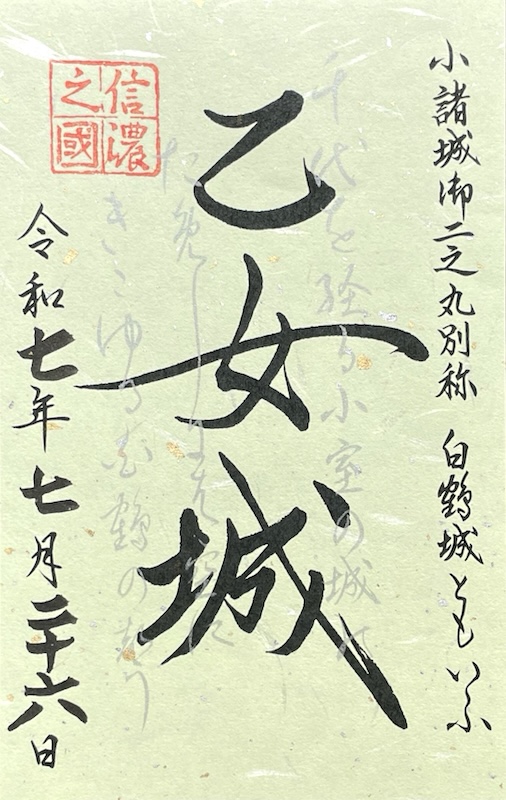 小諸城御二之丸別称 白鶴城ともいふ
乙女城
信濃
之國
千代を経る小室の城
きこゆる
鶴の
令和七年七月二十六日